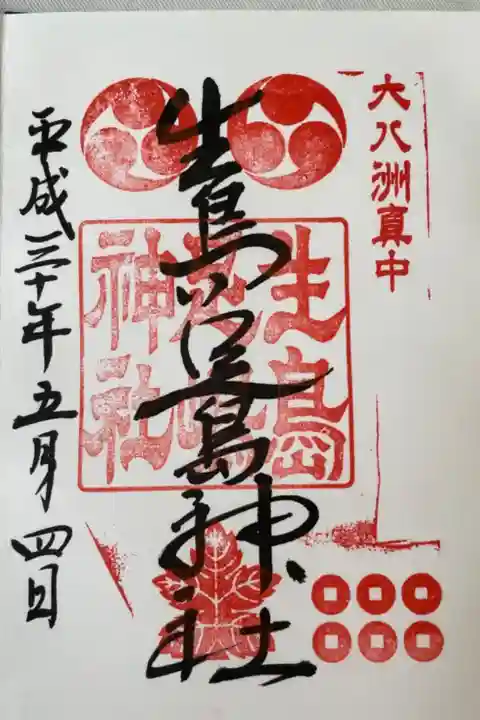 大八洲真中
生島足島神社
生島
足嶋
神社
平成三十年五月四日